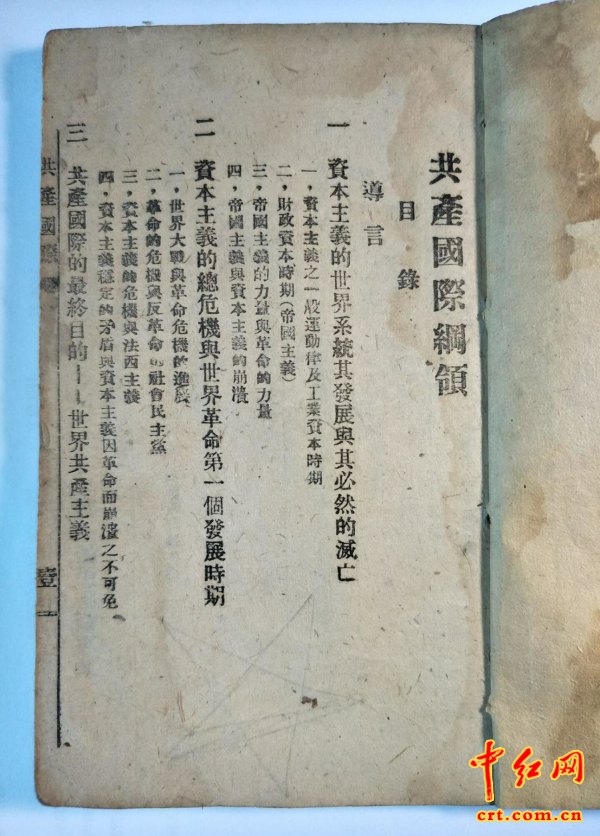 共產國際綱領
目錄
導言
一 資本主義的世界系統其發展與其必然的滅亡
一，資本主義之一般運動律及工業資本時期
二，財政資本時期（帝國主義）
三，帝國主義的力量與革命的力量
四，帝國主義與資本主義的崩潰
二 資本主義的總危機與世界革命第一個發展時期
一，世界大戰與革命危機的進展
二，革命的危機與反革命的社會民主黨
三，資本主義的危機與法西主義
四，資本主義穩定的矛盾與資本主義因革命而崩潰之不可免
三 共產國際的最終目的——世界共產主義
共產國際
壹 一
中红网
crt.com.cn